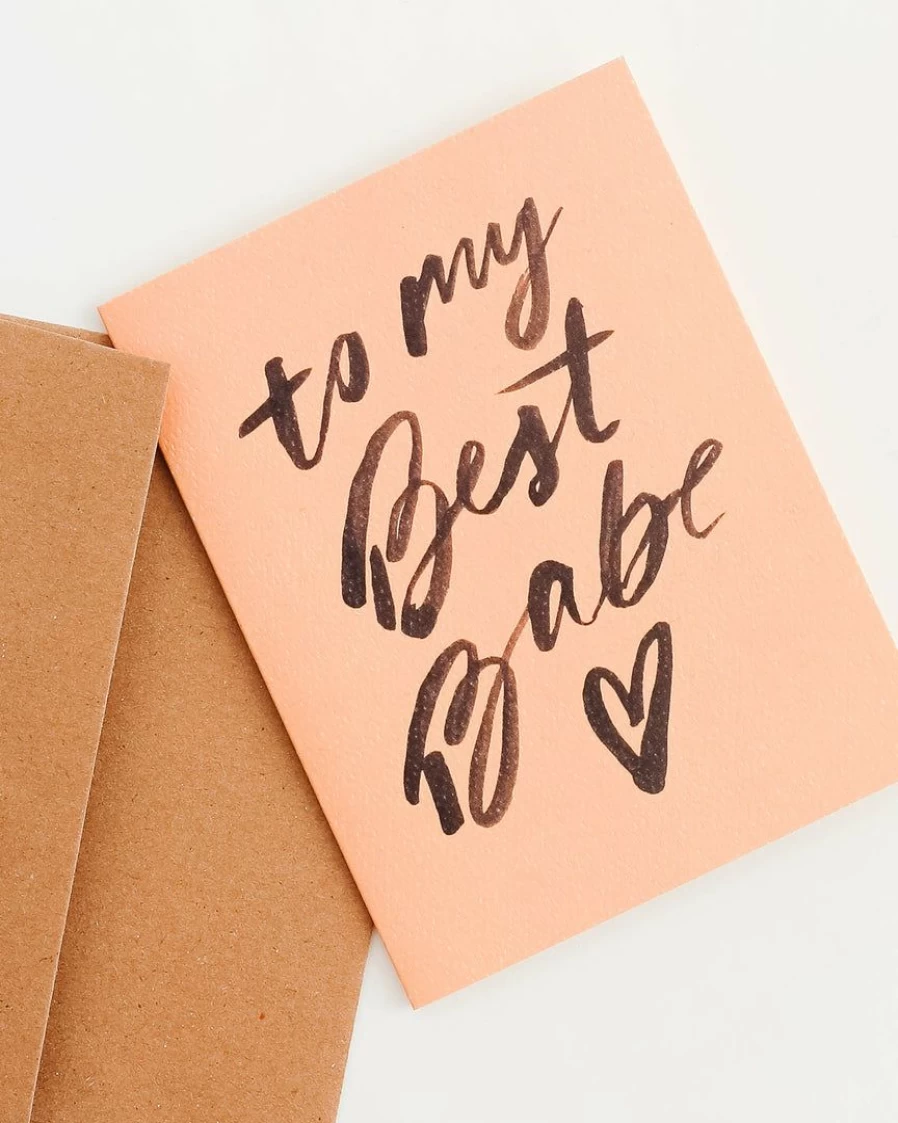 to my
Best
Babe